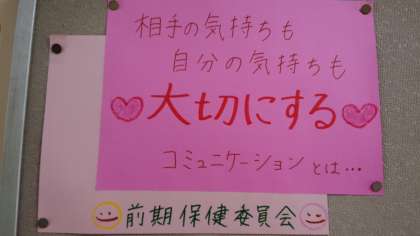 相手の気持ちも
自分の気持ちも
大切にする
コミュニケーションとは…
前期保健委員会